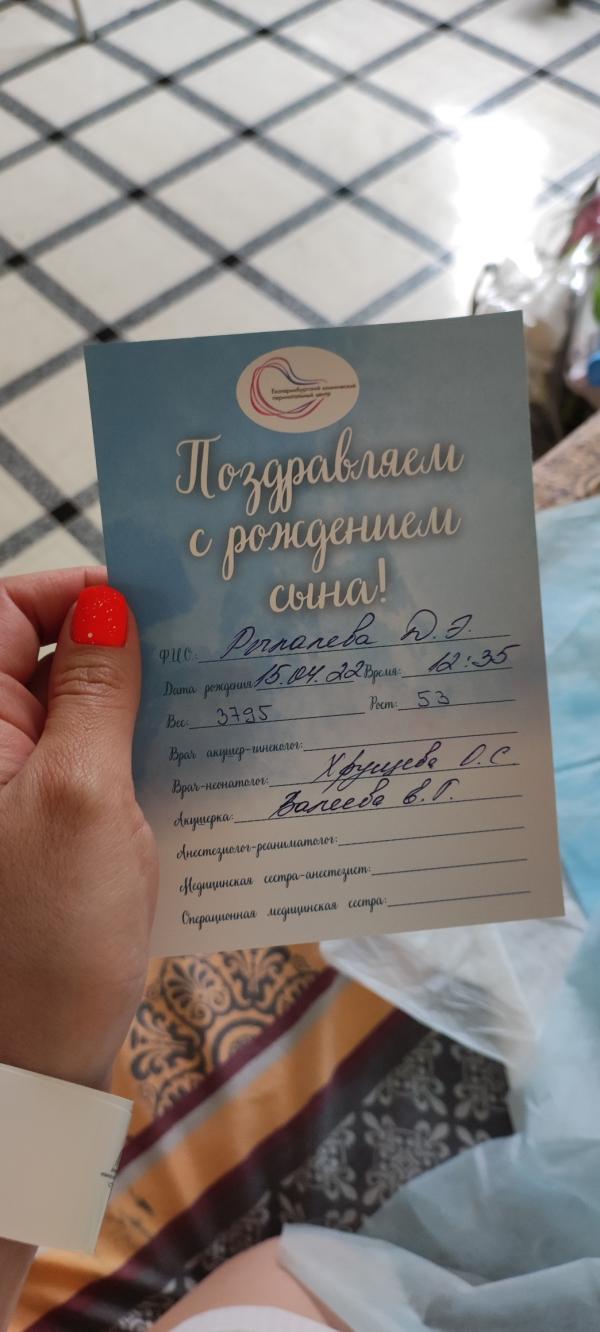 Екатеринбургский клинический
перинатальный центр
Поздравляем
с рождением
сына!
Ф.И.О.: Д.Э.
Дата рождения: 15.04.22 Время: 12:35
Вес: 3795 Рост: 53
Врач акушер-гинеколог:
Врач-неонатолог: Хрущева О.С
Акушерка: Валеева В.Г.
Анестезиолог-реаниматолог:
Медицинская сестра-анестезист:
Операционная медицинская сестра: